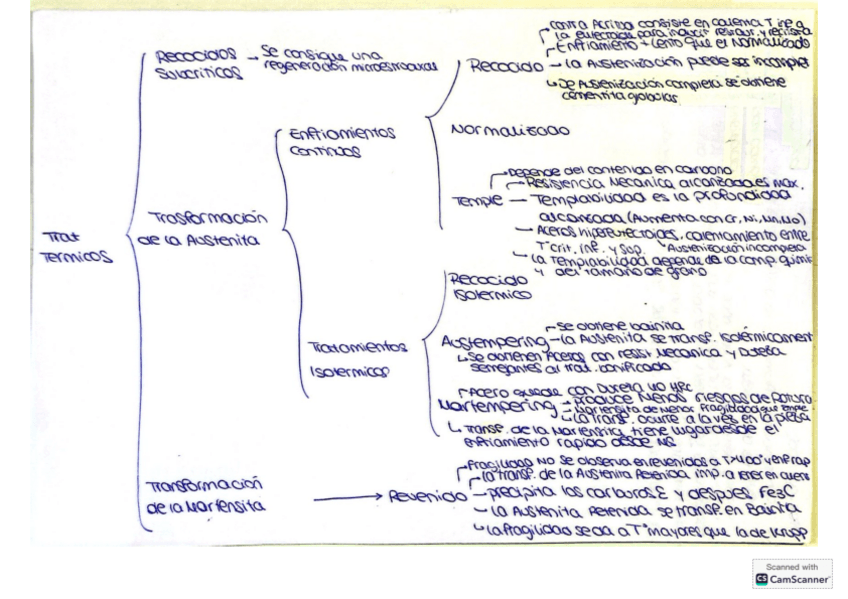 Contra Acritud consiste en calentar T inf a
la eutectoide para inducir restaur. y recrista
Enfriamiento + Lento que el Normalizado
Recocidos
Subcríticos
Se consigue una
regeneración microestructural
Recocido - la Austenización puede ser incomplet
De Austenización completa se obtiene
cementita globular
Enfriamientos
Continuos
Normalizado
Depende del contenido en carbono
Resistencia Mecanica alcanzada es max.
Temple - Templabilidad es la profundidad
alcanzada (Aumenta con Cr, Ni, Mn, Mo)
Aceros hipereutectoides, calentamiento entre
T° crit. inf. y sup. Austenización incompleta
La Templabilidad depende de la comp. quimi
y del tamaño de grano
Trasformación
de la Austenita
Trat
Termicos
Recocido
Isotermico
Se obtiene bainita
Austempering - la Austenita se transf. Isotérmicament
Se obtienen Aceros con resist Mecanica y Dureza
semejantes al trat. bonificado
Tratamientos
Isotermicos
Acero quede con Dureza 40 HRC
Martempering - produce Menos riesgos de Rotura
Martensita de Menor Fragilidad que
La transf. ocurre a la vez en la pieza
Transf. de la Martensita tiene lugar desde el
enfriamiento rapido desde MS
Transformación
de la Martensita
Fragilidad NO se observa en revenidos a T>400° y enf rap
la transf. de la Austenita Retenida imp. a tener en
Revenido - precipita los carburos ε y despues Fe3C
la Austenita Retenida se transf. en Bainita
La fragilidad se da a T° mayores que la de Krupp
Scanned with
CS CamScanner